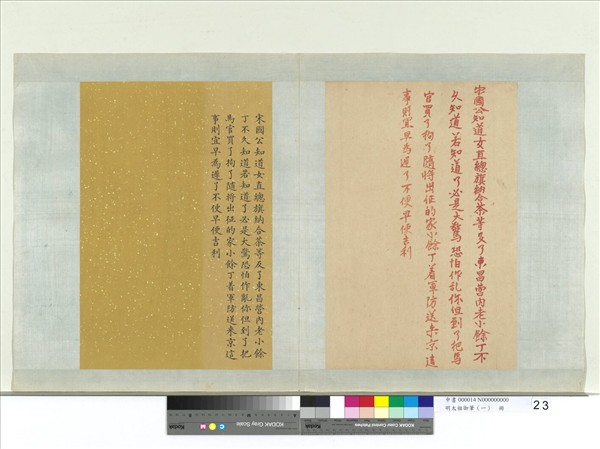 宋國公知道女直總旗納合茶等反了東昌營內老小餘丁不
久知道若知道了必是大驚恐怕作乱你但到了把馬
官買了拘了隨將出征的家小餘丁着軍防送来京這
事則宜早為遲了不便早便吉利
宋國公知道女直總旗納合茶等反了東昌營內老小餘
丁不久知道若知道了必是大驚恐怕作亂你但到了把
馬官買了拘了隨將出征的家小餘丁着軍防送来京這
事則宜早為遲了不便早便吉利
KODAK Gray Scale
KODAK Color Control Patches
Kodak
中書 000014 N000000000
明太祖御筆（一）
23